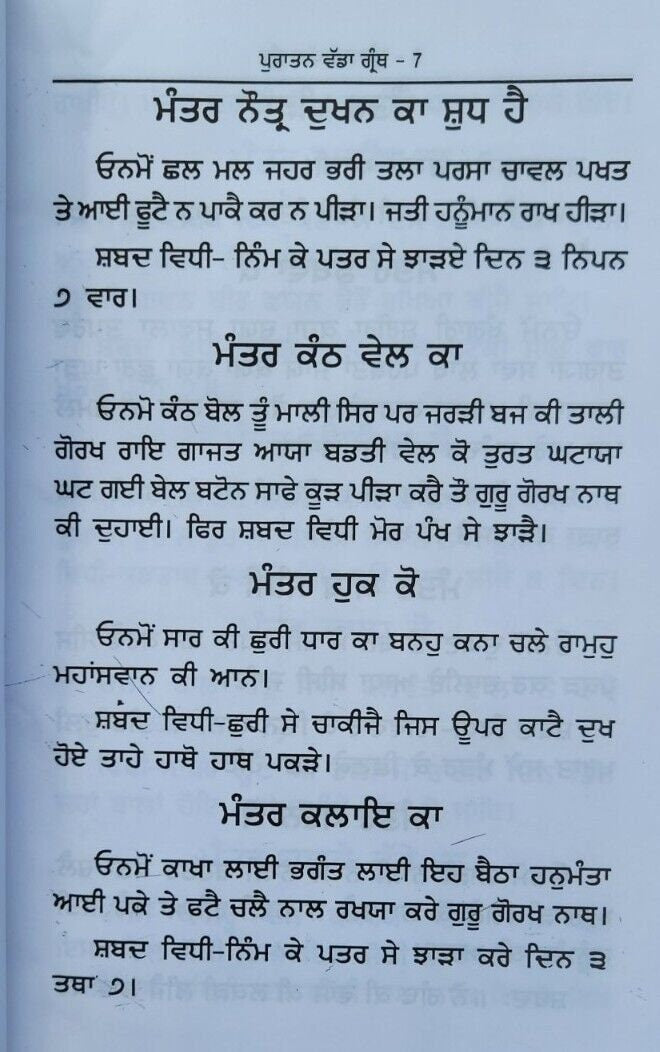 ਪੁਰਾਤਨ ਵੱਡਾ ਗ੍ਰੰਥ - 7
ਮੰਤਰ ਨੌਤ੍ਰ ਦੁਖਨ ਕਾ ਸ਼ੁਧ ਹੈ
ਓਨਮੋਂ ਛਲ ਮਲ ਜਹਰ ਭਰੀ ਤਲਾ ਪਰਸਾ ਚਾਵਲ ਪਖਤ
ਤੇ ਆਈ ਫੂਟੈ ਨ ਪਾਕੈ ਕਰ ਨ ਪੀੜਾ। ਜਤੀ ਹਨੂੰਮਾਨ ਰਾਖ ਹੀੜਾ।
ਸ਼ਬਦ ਵਿਧੀ- ਨਿੰਮ ਕੇ ਪਤਰ ਸੇ ਝਾੜਏ ਦਿਨ ੩ ਨਿਪਨ
੭ ਵਾਰ।
ਮੰਤਰ ਕੰਠ ਵੇਲ ਕਾ
ਓਨਮੋ ਕੰਠ ਬੋਲ ਤੂੰ ਮਾਲੀ ਸਿਰ ਪਰ ਜਰੜੀ ਬਜ ਕੀ ਤਾਲੀ
ਗੋਰਖ ਰਾਇ ਗਾਜਤ ਆਯਾ ਬਡਤੀ ਵੇਲ ਕੋ ਤੁਰਤ ਘਟਾਯਾ
ਘਟ ਗਈ ਬੇਲ ਬਟੋਨ ਸਾਫੇ ਕੂੜ ਪੀੜਾ ਕਰੈ ਤੌ ਗੁਰੂ ਗੋਰਖ ਨਾਥ
ਕੀ ਦੁਹਾਈ। ਫਿਰ ਸ਼ਬਦ ਵਿਧੀ ਮੋਰ ਪੰਖ ਸੇ ਝਾੜੈ।
ਮੰਤਰ ਹੁਕ ਕੋ
ਓਨਮੋਂ ਸਾਰ ਕੀ ਛੁਰੀ ਧਾਰ ਕਾ ਬਨਹੁ ਕਨਾ ਚਲੇ ਰਾਮੁਹੁ
ਮਹਾਂਸਵਾਨ ਕੀ ਆਨ।
ਸ਼ਬਦ ਵਿਧੀ-ਛੁਰੀ ਸੇ ਚਾਕੀਜੈ ਜਿਸ ਊਪਰ ਕਾਟੈ ਦੁਖ
ਹੋਏ ਤਾਹੇ ਹਾਥੋ ਹਾਥ ਪਕੜੇ।
ਮੰਤਰ ਕਲਾਇ ਕਾ
ਓਨਮੋਂ ਕਾਖਾ ਲਾਈ ਭਗੰਤ ਲਾਈ ਇਹ ਬੈਠਾ ਹਨੁਮੰਤਾ
ਆਈ ਪਕੇ ਤੇ ਫਟੈ ਚਲੈ ਨਾਲ ਰਖਯਾ ਕਰੇ ਗੁਰੂ ਗੋਰਖ ਨਾਥ।
ਸ਼ਬਦ ਵਿਧੀ-ਨਿੰਮ ਕੇ ਪਤਰ ਸੇ ਝਾੜਾ ਕਰੇ ਦਿਨ ੩
ਤਥਾ ੭।